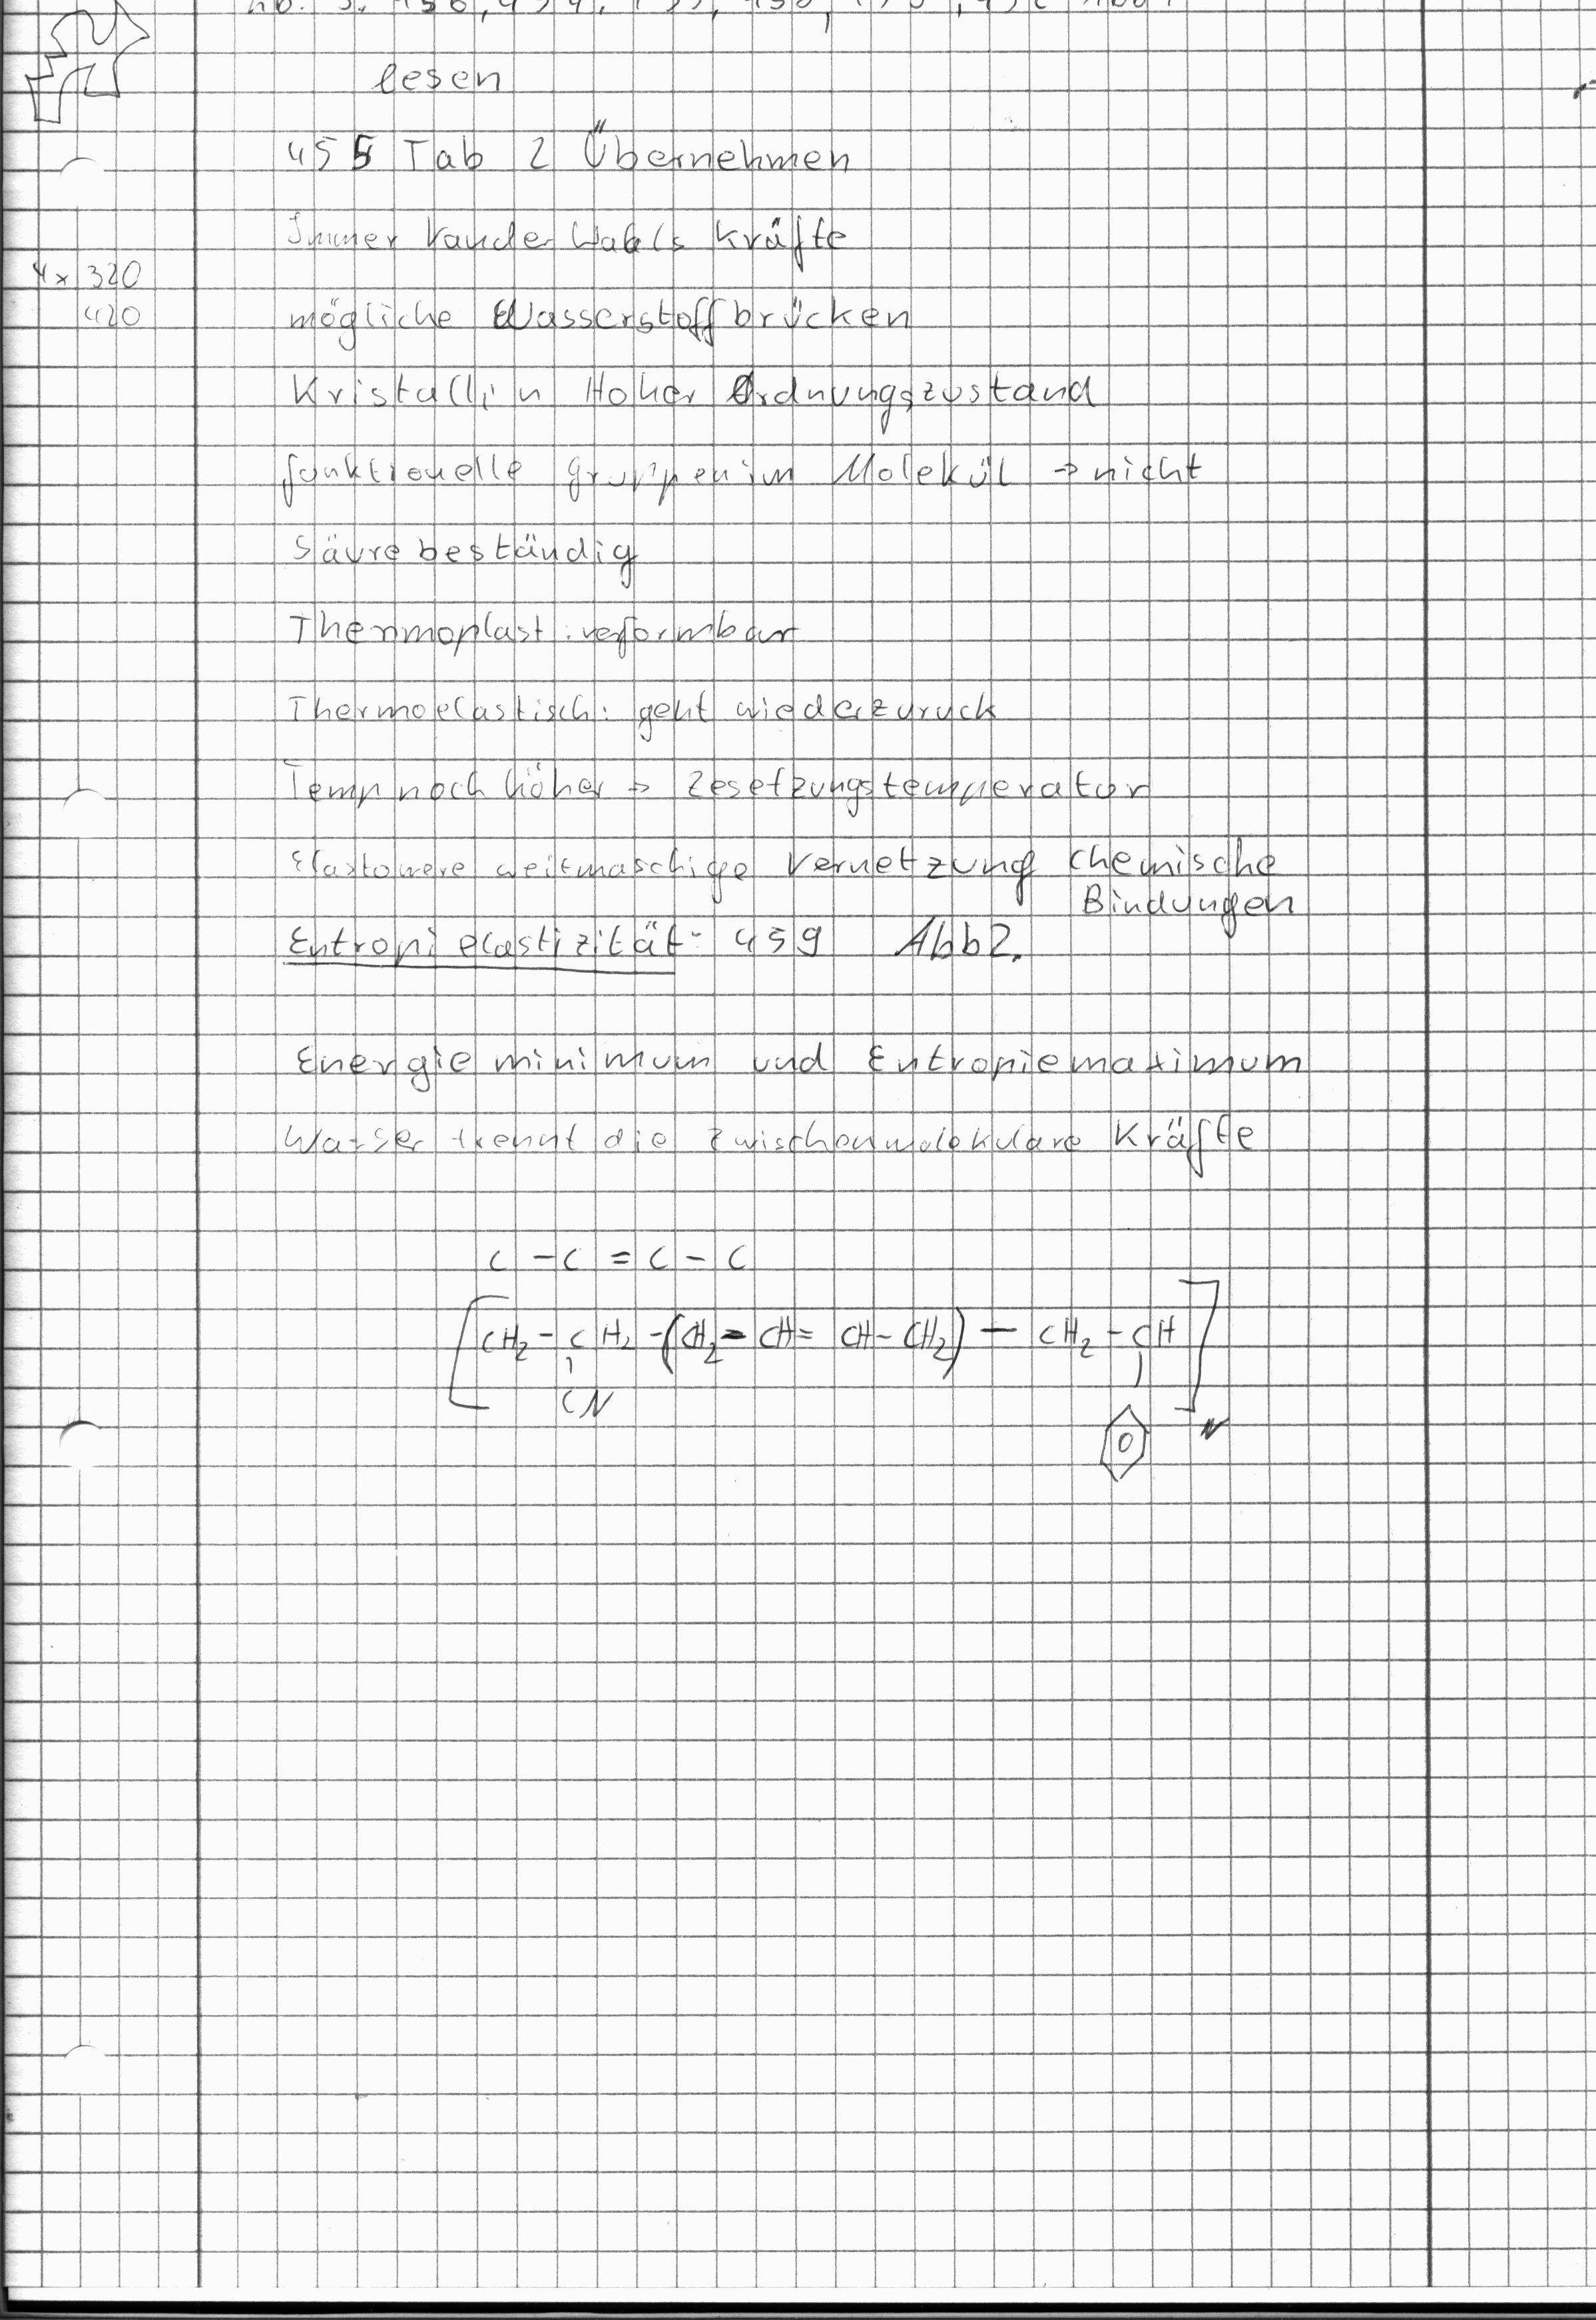 lesen
455 Tab 2 Übernehmen
Immer Vander Waals Kräfte
4x 320
420
mögliche Wasserstoffbrücken
Kristallin Hoher Ordnungszustand
funktionelle gruppen im Molekül → nicht
Säurebeständig
Thermoplast: verformbar
Thermoelastisch: geht wieder zuruck
Temp noch höher → Zesetzungstemperatur
Elastomere weitmaschige Vernetzung chemische
Bindungen
Entropielastizität: 459 Abb2.
Energieminimum und Entropiemaximum
Wasser trennt die zwischenmolekulare Kräfte
C - C = C - C
[CH2 - CH2 - (CH2 - CH = CH - CH2) - CH2 - CH]N
CN